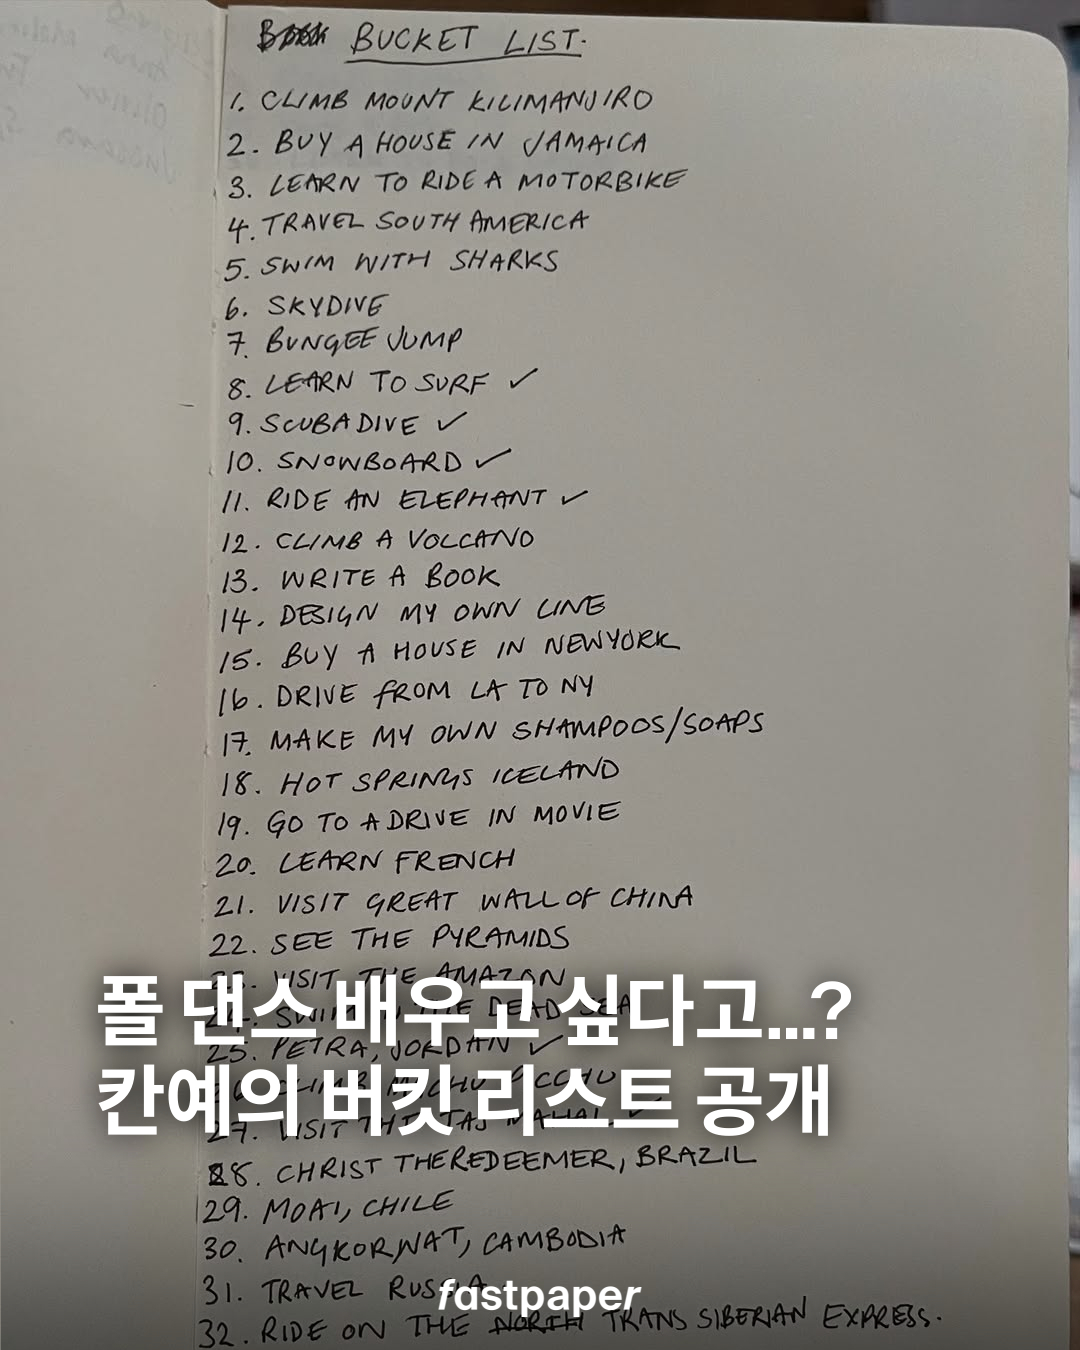 BUCKET LIST.
1. CLIMB MOUNT KILIMANJIRO
2. BUY A HOUSE IN JAMAICA
3. LEARN TO RIDE A MOTORBIKE
4. TRAVEL SOUTH AMERICA
5. SWIM WITH SHARKS
6. SKYDIVE
7. BUNGEE JUMP
8. LEARN TO SURF ✓
9. SCUBA DIVE ✓
10. SNOWBOARD ✓
11. RIDE AN ELEPHANT ✓
12. CLIMB A VOLCANO
13. WRITE A BOOK
14. DESIGN MY OWN LINE
15. BUY A HOUSE IN NEWYORK
16. DRIVE FROM LA TO NY
17. MAKE MY OWN SHAMPOOS/SOAPS
18. HOT SPRINGS ICELAND
19. GO TO A DRIVE IN MOVIE
20. LEARN FRENCH
21. VISIT GREAT WALL OF CHINA
22. SEE THE PYRAMIDS
23. VISIT THE AMAZON
폴 댄스 배우고 싶다고...?
24. SWIM IN THE DEAD SEA
25. PETRA, JORDAN ✓
칸예의 버킷 리스트 공개
26. CLIMB MACHU PICCHU
27. VISIT THE TAJ MAHAL ✓
28. CHRIST THE REDEEMER, BRAZIL
29. MOAI, CHILE
30. ANGKOR WAT, CAMBODIA
31. TRAVEL RUSSIA
fastpaper
32. RIDE ON THE NORTH TRANS SIBERIAN EXPRESS.